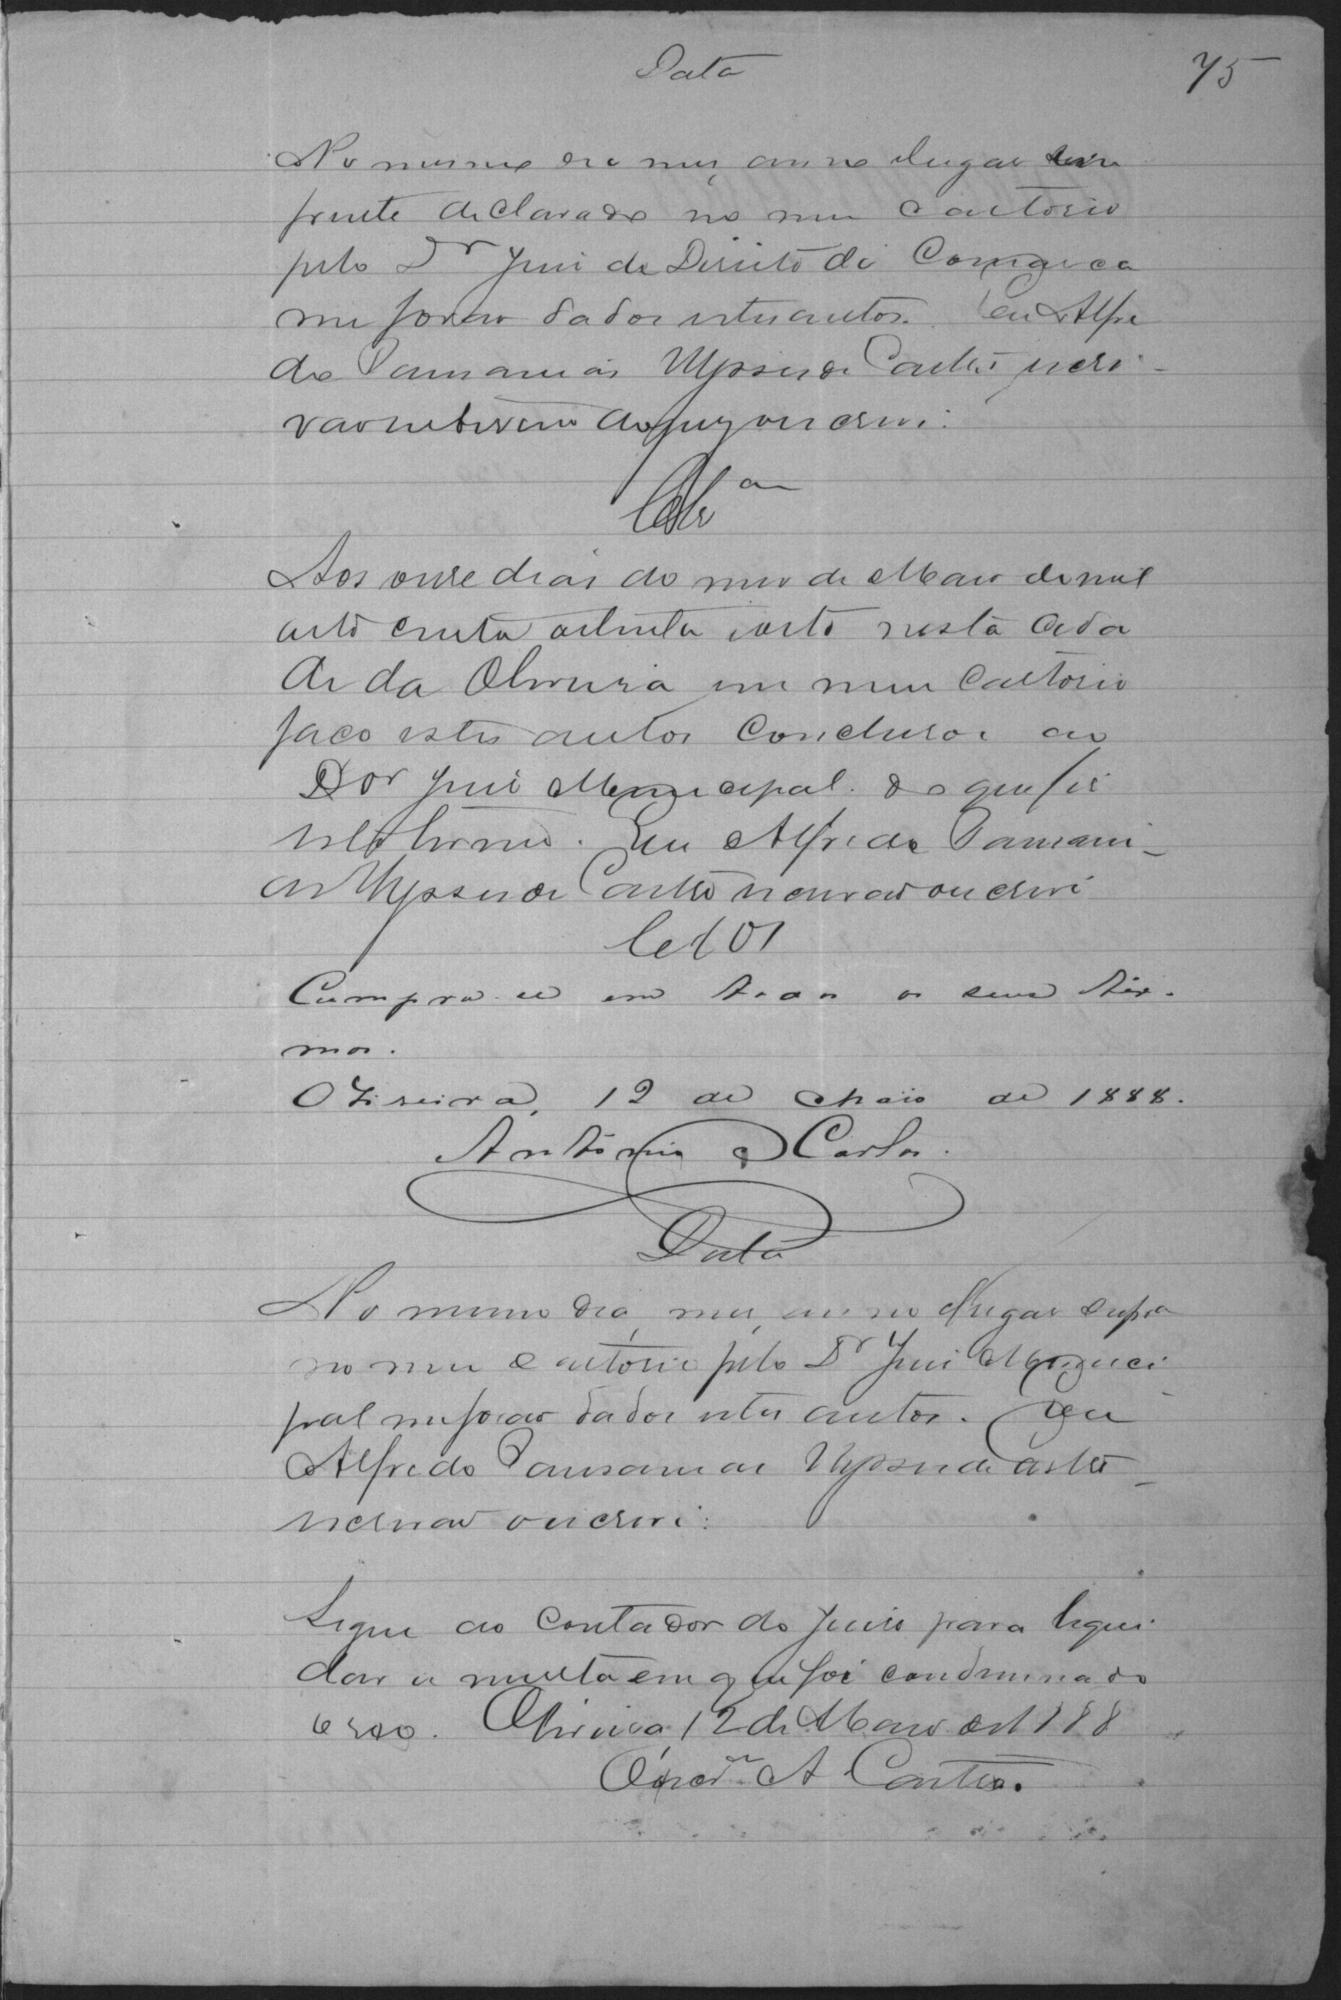 Data
75
No mesmo dia mes, anno e lugar
frente declarado no meu Cartorio
pelo Dr Juiz de Direito da Comarca
me forão dados estes autos. Eu Alfre
do Pausanias Ulysses de Castro escri-
vão que o escrevi.
Clsam
Aos onze dias do mes de Maio de mil
oito centos oitenta e oito nesta cida
de da Oliveira em meu Cartorio
faço estes autos conclusos ao
Dor Juiz Municipal do que fis
este termo. Eu Alfredo Pausani-
as Ulysses de Castro escrivão o escrevi
Cumpra-se em todos os seus ter-
mos.
Oliveira, 12 de Maio de 1888.
Antônio Carlos.
Data
No mesmo dia, mes, anno e lugar supra
no meu Cartorio pelo Dr Juiz Munici
pal me forão dados estes autos. Eu
Alfredo Pausanias Ulysses de Castro
escrivão o escrevi.
Segue ao Contador do Juizo para liqui
dar a multa em que foi condemnado
o reo. Oliveira, 12 de Maio de 1888
A Castro.